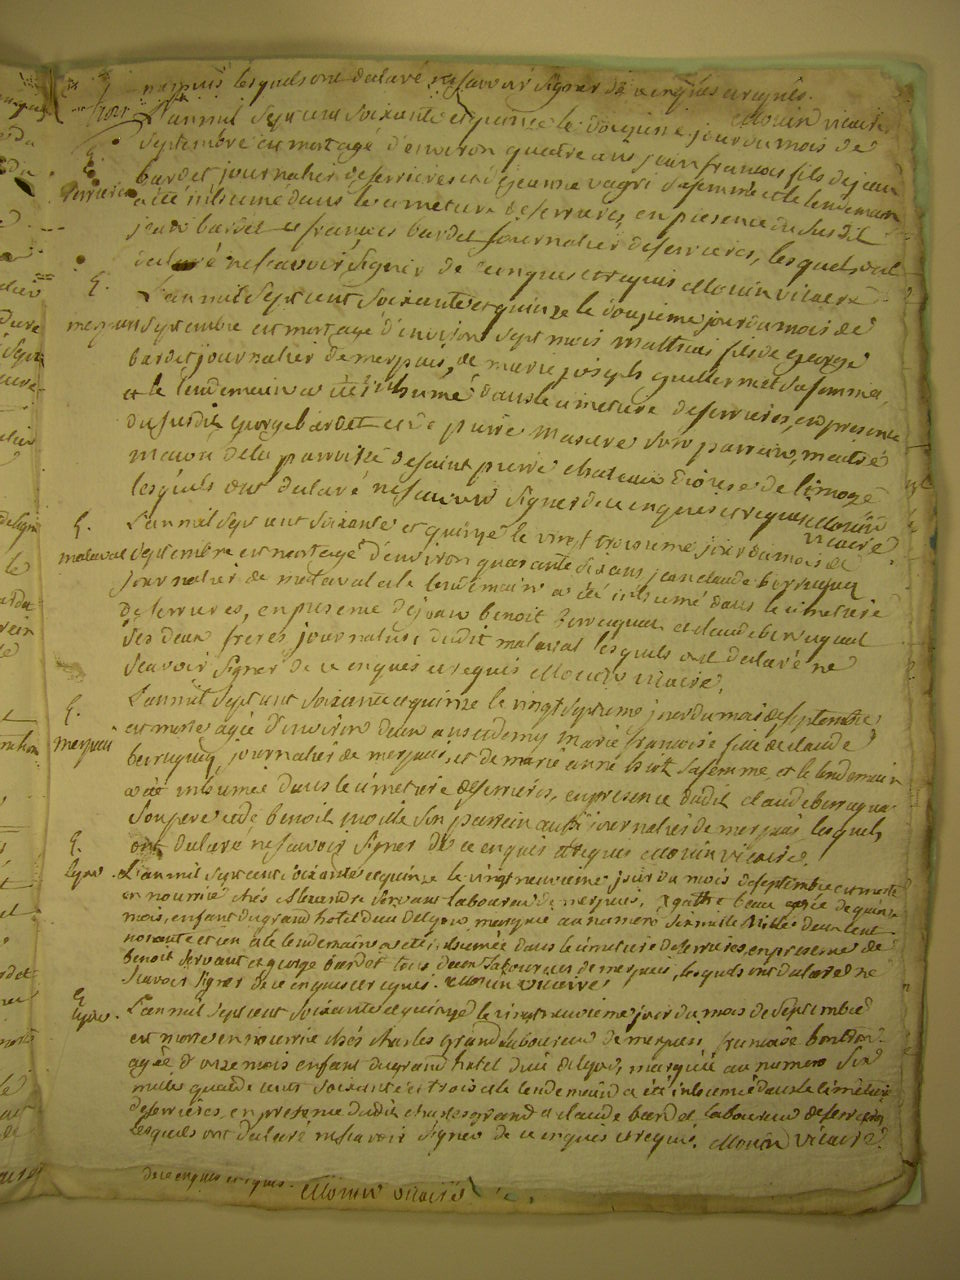 lesquels ont declaré ne scavoir signer de ce enqués et requis.
Mouin vicaire
L'an mil sept cent soixante et quinze le douzieme jour du mois de
septembre est mort agé d'environ quatre ans jean francois fils de jean
ferrieres
bardet journalier de ferrieres et de jeanne vagri sa femme et le lendemain
a été inhumé dans le cimetiere de ferrieres, en presence du susdit
jean bardet et francois bardet journalier de ferrieres, lesquels ont
declaré ne scavoir signer de ce enqués et requis Mouin vicaire
E.
L'an mil sept cent soixante et quinze le douzieme jour du mois de
septembre est mort agé d'environ sept mois mathieu fils de george
bardet journalier de merpuis, de marie joseph guillermet sa femme,
et le lendemain a été inhumé dans le cimetiere de ferrieres, en presence
du susdit george bardet et de pierre masiere son parrain, maitre
macon de la parroisse de saint pierre chateau diocese de limoge
lesquels ont declaré ne scavoir signer de ce enqués et requis Mouin
vicaire
E.
L'an mil sept cent soixante et quinze le vingt troisieme jour du mois de
malaval septembre est mort agé d'environ quarante six ans jean claude
journalier de malaval et le lendemain a été inhumé dans le cimetiere
de ferrieres, en presence de jean benoit et claude
ses deux freres journaliers dudit malaval lesquels ont declaré ne
scavoir signer de ce enqués et requis Mouin vicaire.
E.
L'an mil sept cent soixante et quinze le vingt septieme jour du mois de septembre
est morte agée d'environ deux ans et demy marie francoise fille de claude
merpuis
journalier de merpuis, et de marie anne sa femme, et le lendemain
a été inhumée dans le cimetiere de ferrieres, en presence dudit claude
son pere et de benoit son parrein aussi journalier de merpuis lesquels
E.
ont declaré ne scavoir signer de ce enquis et requis Mouin vicaire.
lyon. L'an mil sept cent soixante et quinze le vingt neuvieme jour du mois de septembre est morte
en nourrice chés Alexandre servant laboureur de merpuis, agathe beau agée de quinze
mois, enfant du grand hotel dieu de lyon, marquée au numero six mille deux cent
nonante et un et le lendemain a été inhumée dans le cimetiere de ferrieres, en presence de
benoit servant et george bardet tous deux laboureurs de merpuis, lesquels ont declaré ne
scavoir signer de ce enqués et requis. Mouin vicaire.
E.
lyon. L'an mil sept cent soixante et quinze le vingt neuvieme jour du mois de septembre
est morte en nourrice chés charles grand laboureur de merpuis francoise
agée d'onze mois enfant du grand hotel dieu de lyon, marquée au numero six
mille quatre cent soixante et trois et le lendemain a été inhumée dans le cimetiere
de ferrieres, en presence dudit charles grand et claude laboureur de ferrieres
lesquels ont declaré ne scavoir signer de ce enqués et requis. Mouin vicaire.
de ce enqués et requis. Mouin vicaire